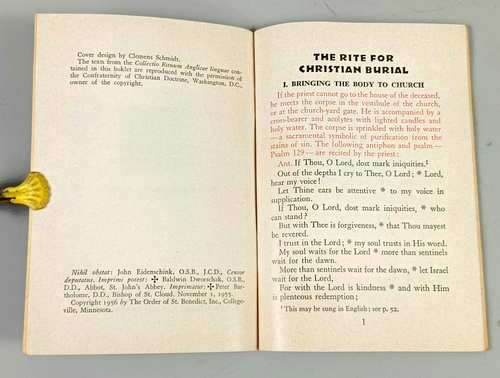 Cover design by Clemens Schmidt.
The texts from the Collectio Rituum Anglicae linguae con-
tained in this booklet are reproduced with the permission of
the Confraternity of Christian Doctrine, Washington, D.C.,
owner of the copyright.
Nihil obstat: John Eidenschink, O.S.B., J.C.D., Censor
deputatus. Imprimi potest: ✠ Baldwin Dworschak, O.S.B.,
D.D., Abbot, St. John's Abbey. Imprimatur: ✠ Peter Bar-
tholome, D.D., Bishop of St. Cloud. November 1, 1955.
Copyright 1956 by The Order of St. Benedict, Inc., College-
ville, Minnesota.
THE RITE FOR
CHRISTIAN BURIAL
I. BRINGING THE BODY TO CHURCH
If the priest cannot go to the house of the deceased,
he meets the corpse in the vestibule of the church,
or at the church-yard gate. He is accompanied by a
cross-bearer and acolytes with lighted candles and
holy water. The corpse is sprinkled with holy water
— a sacramental symbolic of purification from the
stains of sin. The following antiphon and psalm —
Psalm 129 — are recited by the priest:
Ant. If Thou, O Lord, dost mark iniquities.¹
Out of the depths I cry to Thee, O Lord; * Lord,
hear my voice!
Let Thine ears be attentive * to my voice in
supplication.
If Thou, O Lord, dost mark iniquities, * who
can stand?
But with Thee is forgiveness, * that Thou mayest
be revered.
I trust in the Lord; * my soul trusts in His word.
My soul waits for the Lord * more than sentinels
wait for the dawn.
More than sentinels wait for the dawn, * let Israel
wait for the Lord,
For with the Lord is kindness * and with Him
is plenteous redemption;
¹ This may be sung in English; see p. 52.
1